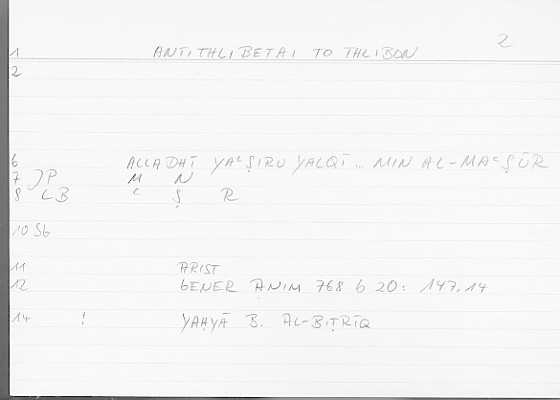 2
1 ANTITHLIBETAI TO THLIBON
2
6 ALLADHĪ YAʿṢIRU YALQĪ … MIN AL-MAʿṢŪR
7 JP M N
8 LB ʿ Ṣ R
10 Sb
11 ARIST
12 GENER ANIM 768 b 20: 147.14
14 ! YAḤYĀ B. AL-BIṬRĪQ